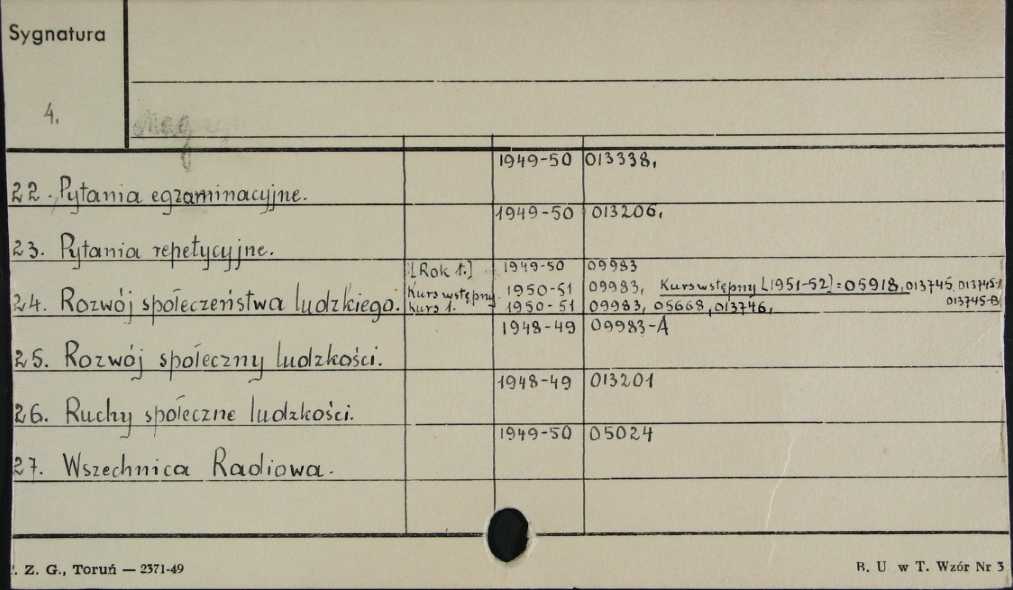 Sygnatura
4.
1949-50 013338,
22. Pytania egzaminacyjne.
1949-50 013206,
23. Pytania repetycyjne.
[Rok 1.] 1949-50 09983
Kurs wstępny. 1950-51 09983, Kurs wstępny [1951-52] = 05918, 013745, 013745-1
24. Rozwój społeczeństwa ludzkiego. kurs 1. 1950-51 09983, 05668, 013746, 013745-B
1948-49 09983-A
25. Rozwój społeczny ludzkości.
1948-49 013201
26. Ruchy społeczne ludzkości.
1949-50 05024
27. Wszechnica Radiowa.
Z. G., Toruń — 2371-49
B. U w T. Wzór Nr 3